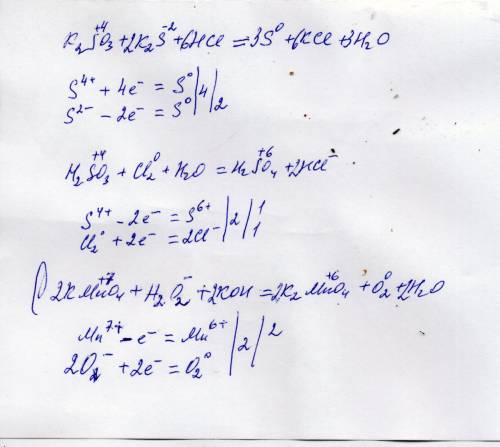 K₂S⁺⁴O₃ + 2K₂S⁻² + 6HCl = 3S⁰ + 6KCl + 3H₂O
S⁴⁺ + 4e⁻ = S⁰ | 4 |
S²⁻ − 2e⁻ = S⁰ | | 2
H₂S⁺⁴O₃ + Cl₂⁰ + H₂O = H₂S⁺⁶O₄ + 2HCl⁻
S⁴⁺ − 2e⁻ = S⁶⁺ | 2 | 1
Cl₂⁰ + 2e⁻ = 2Cl⁻ | | 1
2KMn⁺⁷O₄ + H₂O₂⁻ + 2KOH = 2K₂Mn⁺⁶O₄ + O₂⁰ + 2H₂O
Mn⁷⁺ − e⁻ = Mn⁶⁺ | | 2
2O₂⁻ + 2e⁻ = O₂⁰ | 2 |